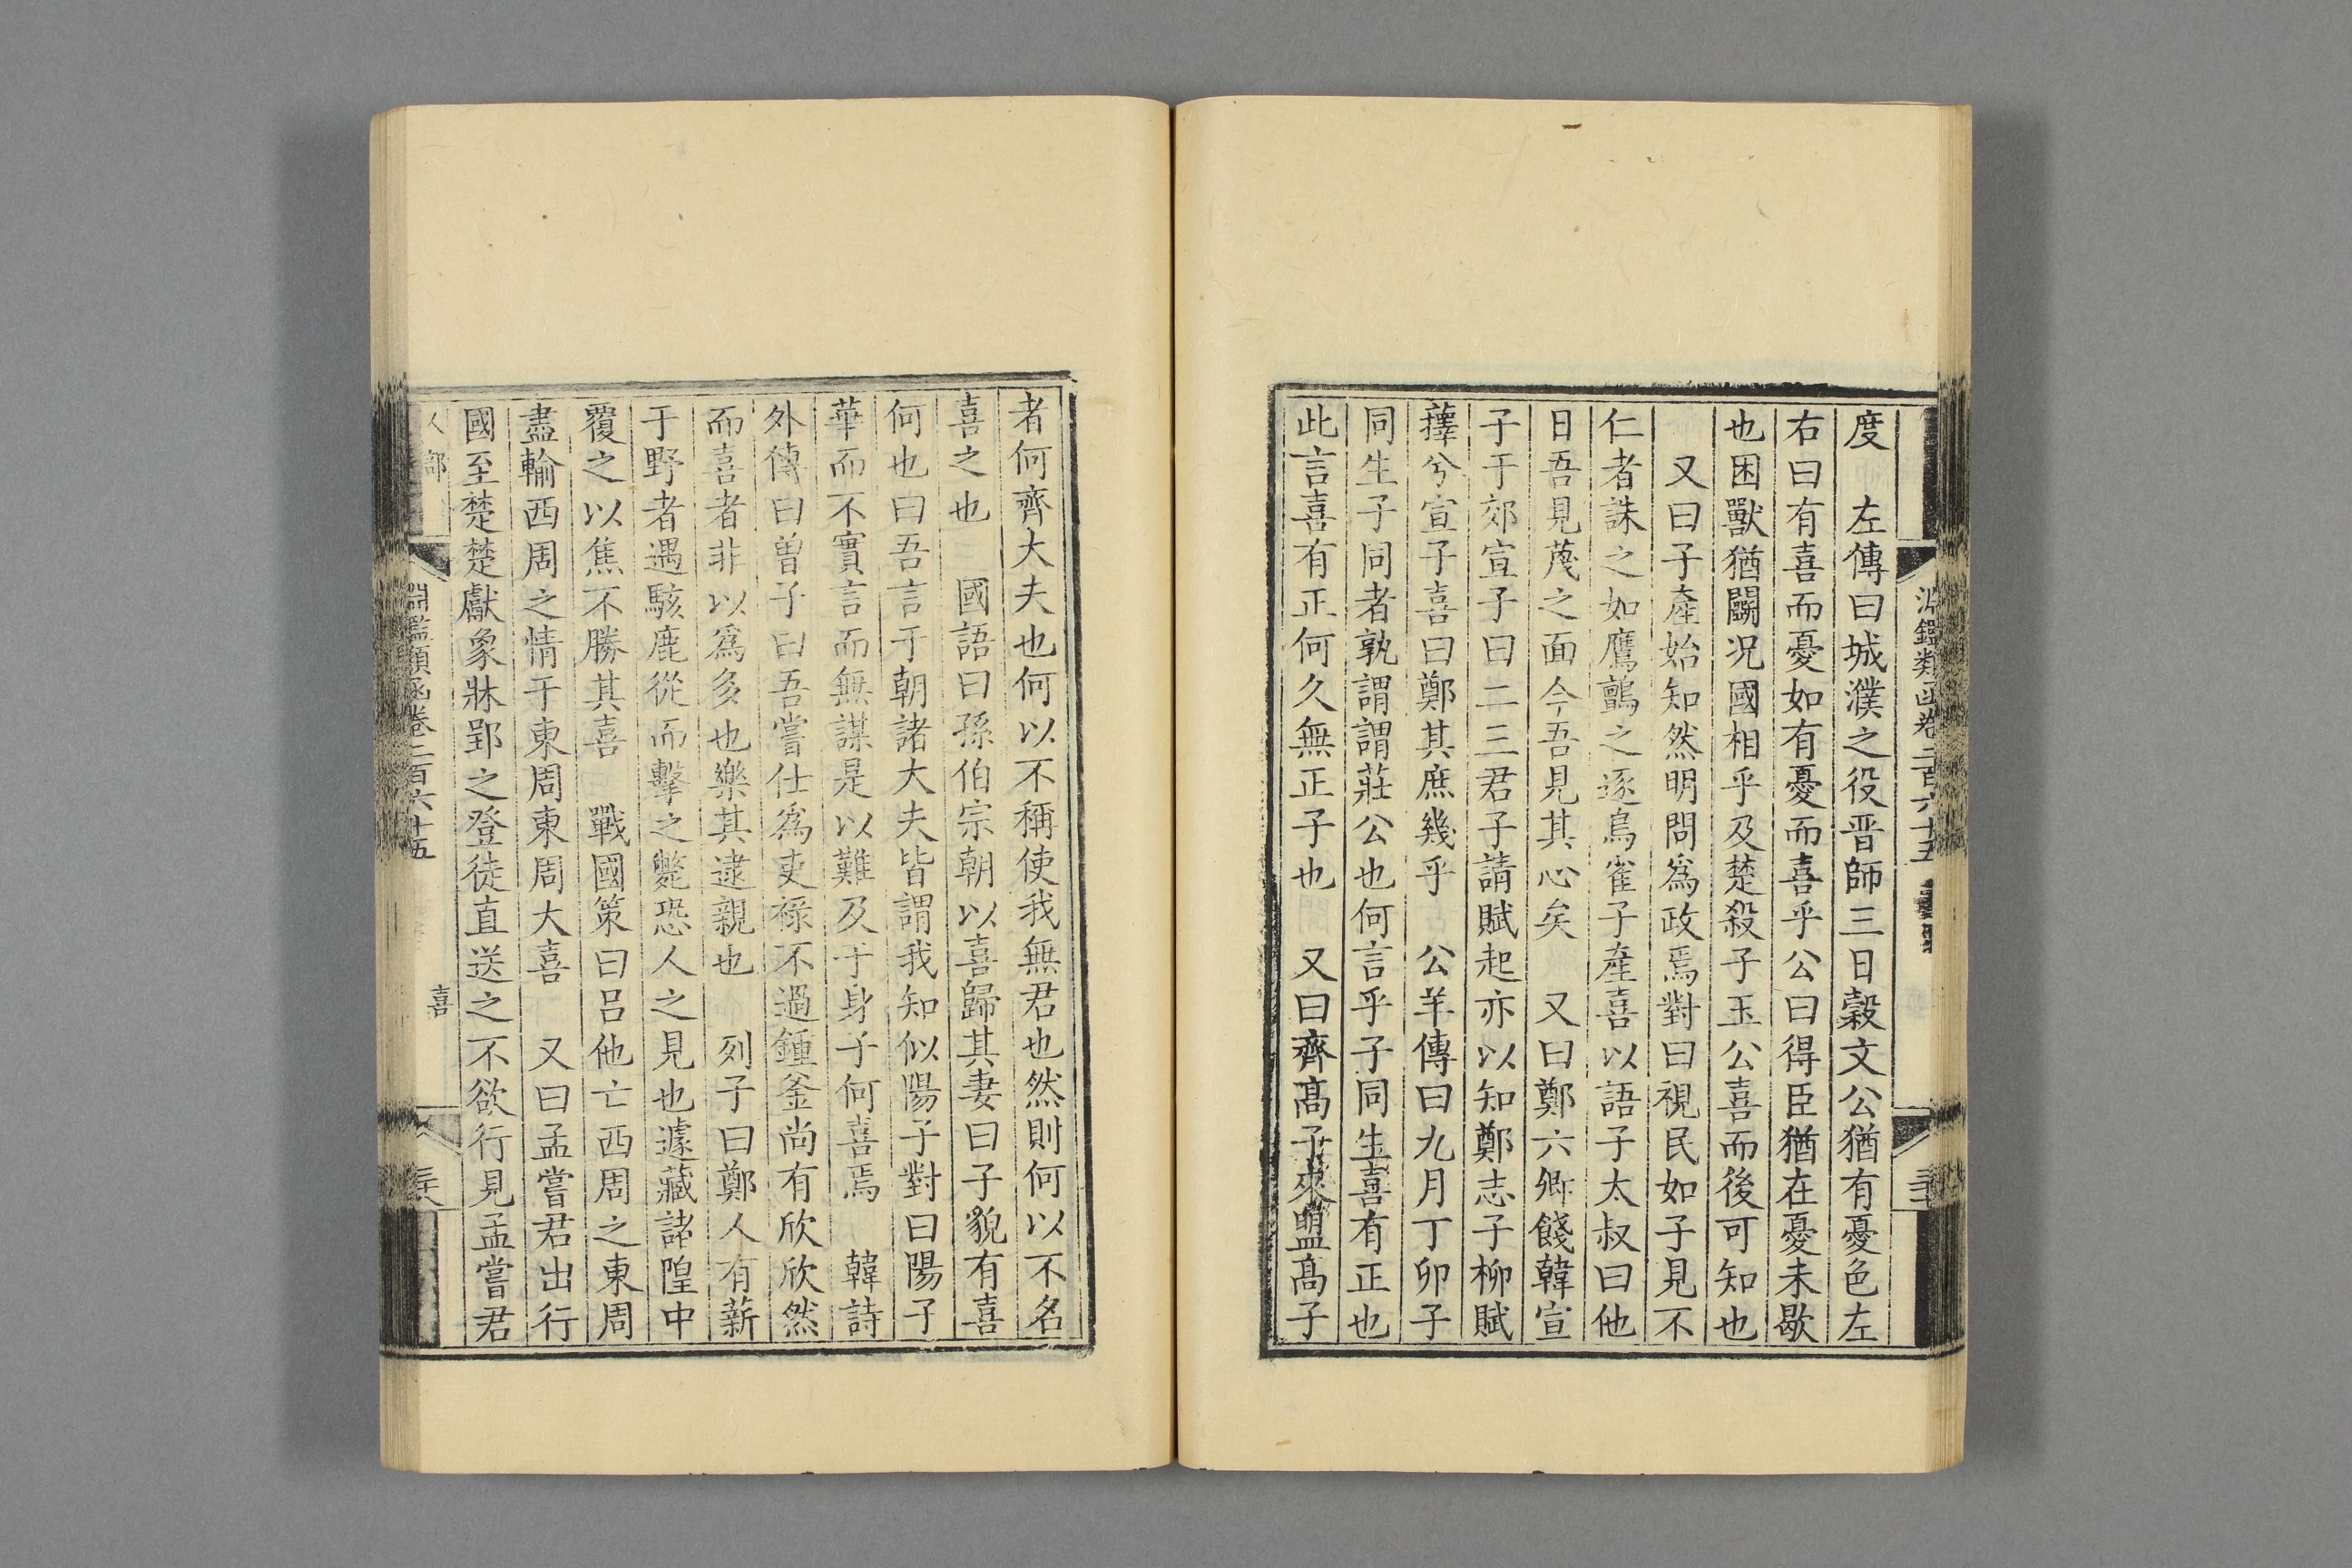 淵鑑類函卷二百六十五
度　左傳曰城濮之役晋師三日穀文公猶有憂色左
右曰有喜而憂如有憂而喜乎公曰得臣猶在憂未歇
也困獸猶鬭况國相乎及楚殺子玉公喜而後可知也
又曰子產始知然明問爲政焉對曰視民如子見不
仁者誅之如鷹鸇之逐鳥雀子產喜以語子太叔曰他
日吾見蔑之面今吾見其心矣　又曰鄭六卿餞韓宣
子于郊宣子曰二三君子請賦起亦以知鄭志子柳賦
蘀兮宣子喜曰鄭其庶幾乎　公羊傳曰九月丁卯子
同生子同者孰謂謂莊公也何言乎子同生喜有正也
此言喜有正何久無正子也　又曰齊髙子來盟髙子
者何齊大夫也何以不稱使我無君也然則何以不名
喜之也　國語曰孫伯宗朝以喜歸其妻曰子貌有喜
何也曰吾言于朝諸大夫皆謂我知似陽子對曰陽子
華而不實言而無謀是以難及于身子何喜焉　韓詩
外傳曰曽子曰吾嘗仕爲吏禄不過鍾釜尚有欣欣然
而喜者非以爲多也樂其逮親也　列子曰鄭人有薪
于野者遇駭鹿從而擊之斃恐人之見也遽藏諸隍中
覆之以焦不勝其喜　戰國策曰吕他亡西周之東周
盡輸西周之情于東周東周大喜　又曰孟嘗君出行
國至楚楚獻象牀郢之登徒直送之不欲行見孟嘗君
人部
淵鑑類函卷二百六十五
喜